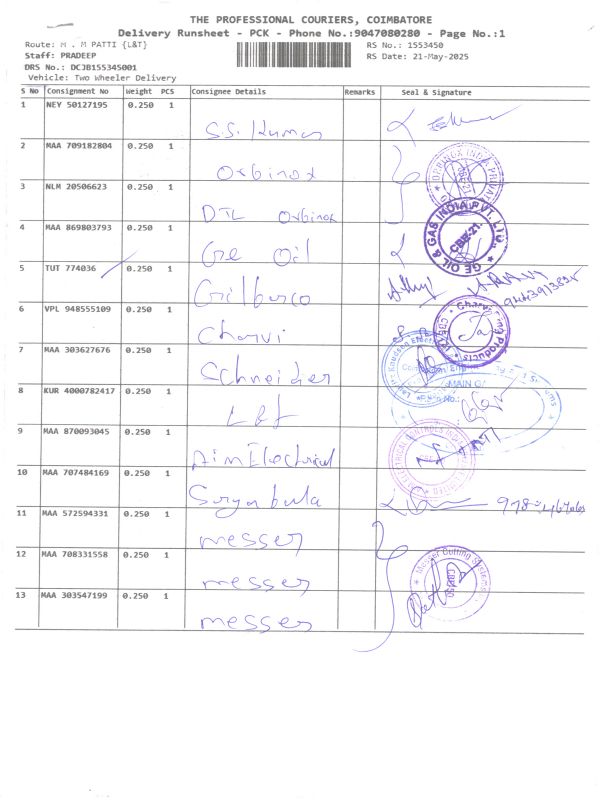 THE PROFESSIONAL COURIERS, COIMBATORE
Delivery Runsheet - PCK - Phone No.:9047080280 - Page No.:1
Route: M . M PATTI {L&T} RS No.: 1553450
Staff: PRADEEP RS Date: 21-May-2025
DRS No.: DCJB155345001
Vehicle: Two Wheeler Delivery
S No Consignment No Weight PCS Consignee Details Remarks Seal & Signature
1 NEY 50127195 0.250 1 S.S. Kumar
2 MAA 709182804 0.250 1 Oxbinox
3 NLM 20506623 0.250 1 DTL Oxbinox
4 MAA 869803793 0.250 1 Gre Oil
GE OIL & GAS INDIA PVT. LTD. CBE-21.
5 TUT 774036 0.250 1 Grilbarco
6 VPL 948555109 0.250 1 Charvi
7 MAA 303627676 0.250 1 Schneider
MAIN GA
8 KUR 4000782417 0.250 1 L&T
9 MAA 870093045 0.250 1 Aim Electrical
10 MAA 707484169 0.250 1 Suryabala
11 MAA 572594331 0.250 1 messer
12 MAA 708331558 0.250 1 messer
Messer Cutting Systems
13 MAA 303547199 0.250 1 messer